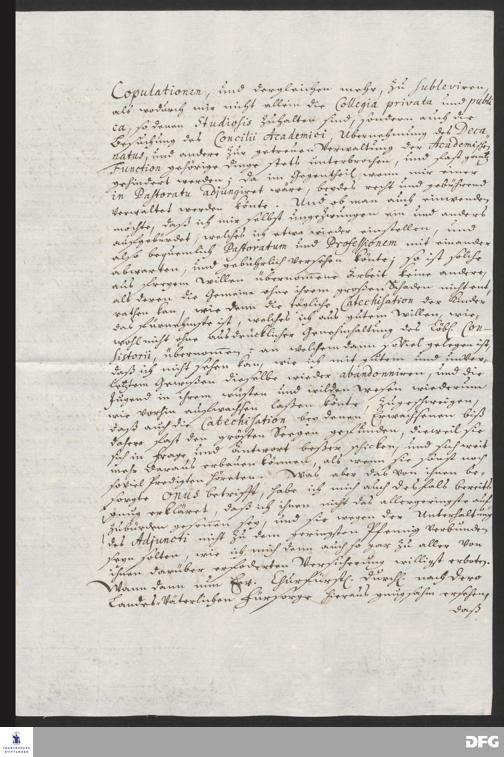 Copulationen, und dergleichen mehr, zu subleviren,
als wodurch mir nicht allein die Collegia privata und publi-
ca, so denen Studiosis zuhalten sind, sondern auch die
Besuchung des Concilii Academici, Ubernehmung des Deca-
natus, und andere zur getreuen Verwaltung der Academischen
Function gehörige Dinge stets unterbrochen, und fast gäntzl.
gehindert werden, da im Gegentheil, wenn mir einer
in Pastoratu adjungiret wäre, beydes recht und gebührend
verwaltet werden könte. Und ob man auch einwenden
möchte, daß ich mir selbst ungezwungen ein und anders
aufgebürdet, welches ich etwa wieder einstellen, und
also bequemlich Pastoratum und Professionem mit einander
abwarten, und gebührlich versehen könte, so ist solche
aus freyem Willen übernommene Arbeit keine andere,
als deren die Gemeine ohne ihrem grossen Schaden nicht ent-
rathen kan, wie denn die tägliche Catechisation der Kinder
das Fürnehmste ist, welches ich aus gutem Willen, wie-
wohl nicht ohne ausdrückliche Genehmhaltung des Löbl. Con-
sistorii, übernommen, an welchem dann so viel gelegen ist,
daß ich nicht sehen kan, wie ich mit gutem und unver-
letztem Gewissen dieselbe wieder abandonniren, und die
Jugend in ihrem wüsten und wilden Wesen wiederum
wie vorhin aufwachsen lassen könte, zugeschweigen,
daß auch die Catechisation bey denen Erwachsenen biß
dahero fast den grösten Seegen gefunden, dieweil sie
sich in Frage und Antwort besser schicken, und sich weit
mehr daraus erbauen können, als wenn sie sonst noch
soviel Predigten höreten. Was aber das von ihnen be-
sorgte onus betrifft, habe ich mich auch deshalb bereits
gnug erkläret, daß ich ihnen nicht das allergeringste auf-
zubürden gesonnen sey, und sie wegen der Unterhaltung
des Adjuncti nicht zu dem geringsten Pfennig verbunden
seyn solten, wie ich mich dann auch so gar zu aller von
ihnen darüber erfoderten Versicherung willigst erboten.
Wann dann nun Ew. Churfürstl. Durchl. nach dero
Landes-Väterlichen Fürsorge hieraus gnugsahm ersehen,
daß
FRANCKESCHE
STIFTUNGEN
DFG